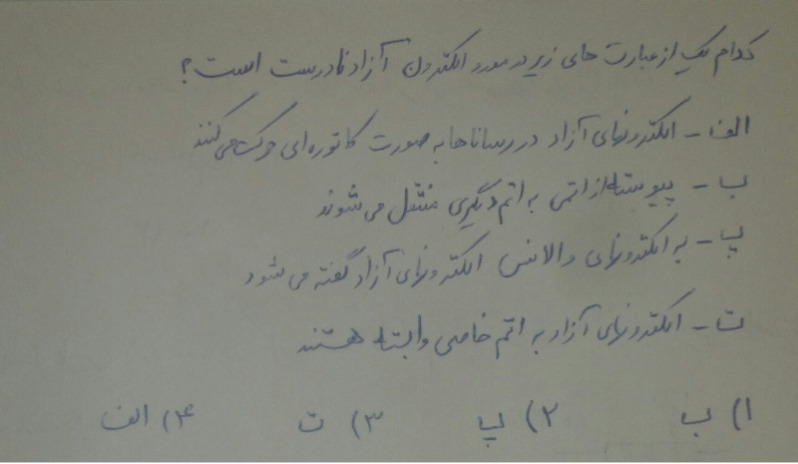 کدام یک از عبارت های زیر در مورد الکترون آزاد نادرست است؟
الف - الکترونهای آزاد در رساناها به صورت کاتوره‌ای حرکت می کنند
ب - پیوسته از اتمی به اتم دیگری منتقل می شوند
پ - به الکترونهای والانس الکترونهای آزاد گفته می شود
ت - الکترونهای آزاد به اتم خاصی وابسته هستند
۱) ب ۲) پ ۳) ت ۴) الف